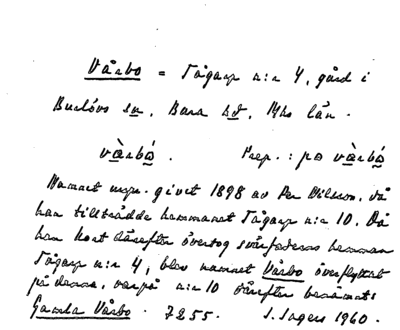 Vårbo = Tågarp n:r 4, gård i
Burlövs sn, Bara hd, Mhs län.
vàrbó. Prep.: på vàrbó
Namnet uppr. givet 1898 av Per Nilsson, då
han tillträdde hemmanet Tågarp n:r 10. Då
han kort därefter övertog svärfaderns hemman
Tågarp n:r 4, blev namnet Vårbo överflyttat
på denna, varpå n:r 10 därefter benämnts
Gamla Vårbo. 7255. I. Ingers 1960.